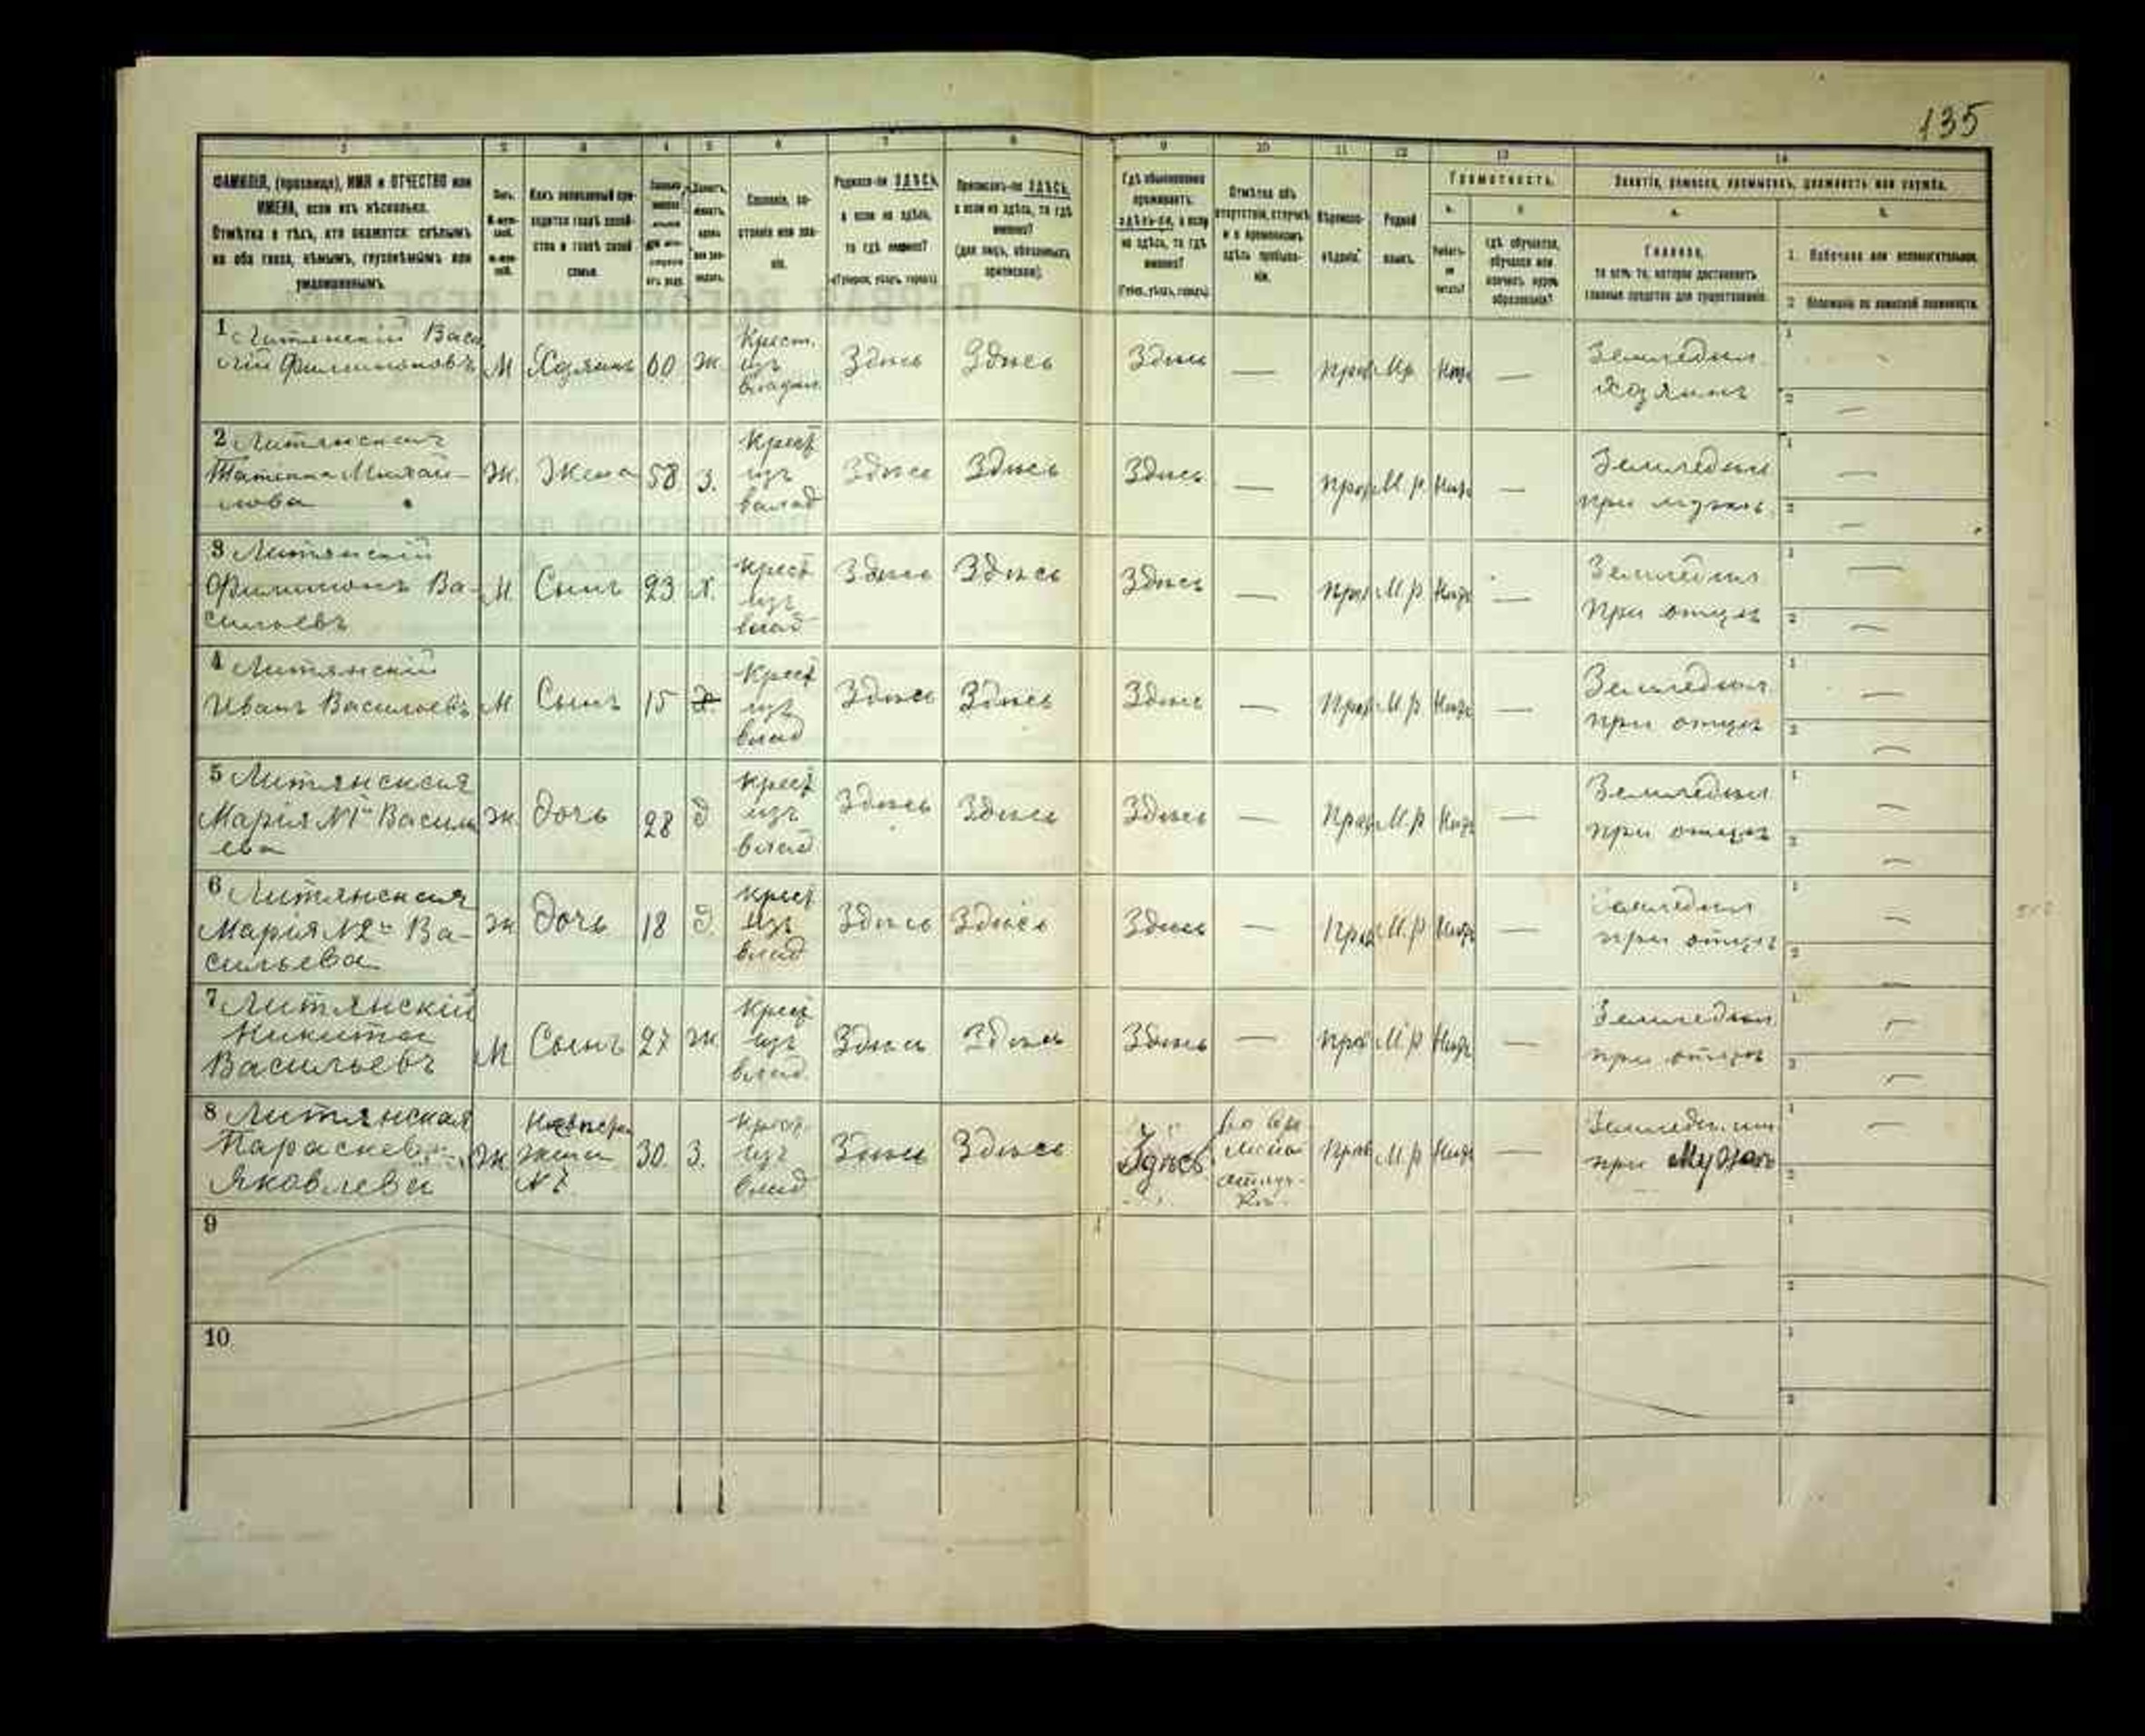 135
1 2 3 4 5 6 7 8 9 10 11 12 13 14
ФАМИЛІЯ, (прозвище), ИМЯ и ОТЧЕСТВО или
ИМЕНА, если ихъ нѣсколько.
Отмѣтка о тѣхъ, кто окажется: слѣпымъ
на оба глаза, нѣмымъ, глухонѣмымъ или
умалишеннымъ.
Полъ.
Какъ записанный при-
ходится главѣ хозяй-
ства и главѣ своей
семьи.
Сословіе, со-
стояніе или зва-
ніе.
Родился-ли ЗДѢСЬ,
а если не здѣсь,
то гдѣ именно?
(Губернія, уѣздъ, городъ)
Приписанъ-ли ЗДѢСЬ,
а если не здѣсь, то гдѣ
именно?
(для лицъ, обязанныхъ
припискою).
Гдѣ обыкновенно
проживаетъ:
здѣсь-ли, а если
не здѣсь, то гдѣ
именно?
(Губер., уѣздъ, городъ)
Отмѣтка объ
отсутствіи, отлучкѣ
и о временномъ
здѣсь пребыва-
ніи.
Вѣроиспо-
вѣданіе.
Родной
языкъ.
Грамотность.
а. б.
Умѣетъ-
ли
читать?
гдѣ обучается,
обучался или
кончилъ курсъ
образованія?
Занятіе, ремесло, промыселъ, должность или служба.
а. б.
Главное,
то есть то, которое доставляетъ
главныя средства для существованія.
1. Побочное или вспомогательное.
2. Положеніе по воинской повинности.
1 Литянскій Васи
лій Филимоновъ М Хозяинъ 60 Ж. Крест. изъ владѣл. Здѣсь Здѣсь Здѣсь — прав М.р. Нѣтъ — Земледѣл. Хозяинъ 1 2 —
2 Литянская
Татьяна Михай-
лова Ж. Жена 58 З. Крест изъ влад Здѣсь Здѣсь Здѣсь — прав М.р. Нѣтъ — Земледѣл при мужѣ 1 — 2 —
3 Литянскій
Филимонъ Ва-
сильевъ М. Сынъ 23 Х. Крест изъ влад Здѣсь Здѣсь Здѣсь — прав М.р Нѣтъ — Земледѣл при отцѣ 1 — 2 —
4 Литянскій
Иванъ Васильевъ М Сынъ 15 Крест изъ влад Здѣсь Здѣсь Здѣсь — Прав М.р Нѣтъ — Земледѣл при отцѣ 1 — 2 —
5 Литянская
Марія №1й Василь
ева Ж. Дочь 28 Д Крест изъ влад Здѣсь Здѣсь Здѣсь — Прав М.р Нѣтъ — Земледѣл при отцѣ 1 — 2 —
6 Литянская
Марія №2й Ва-
сильева Ж Дочь 18 Д. Крест изъ влад Здѣсь Здѣсь Здѣсь — Прав М.р Нѣтъ — Земледѣл при отцѣ 1 — 2 —
7 Литянскій
Никита
Васильевъ М Сынъ 27 Ж. Крест изъ влад. Здѣсь Здѣсь Здѣсь — прав М.р Нѣтъ — Земледѣл при отцѣ 1 — 2 —
8 Литянская
Параскева
Яковлева Ж Невѣстка жена №7. 30. З. Крест изъ влад Здѣсь Здѣсь Здѣсь Прав М.р Нѣтъ — при Мужѣ 1 — 2
9 1 2
10 1 2